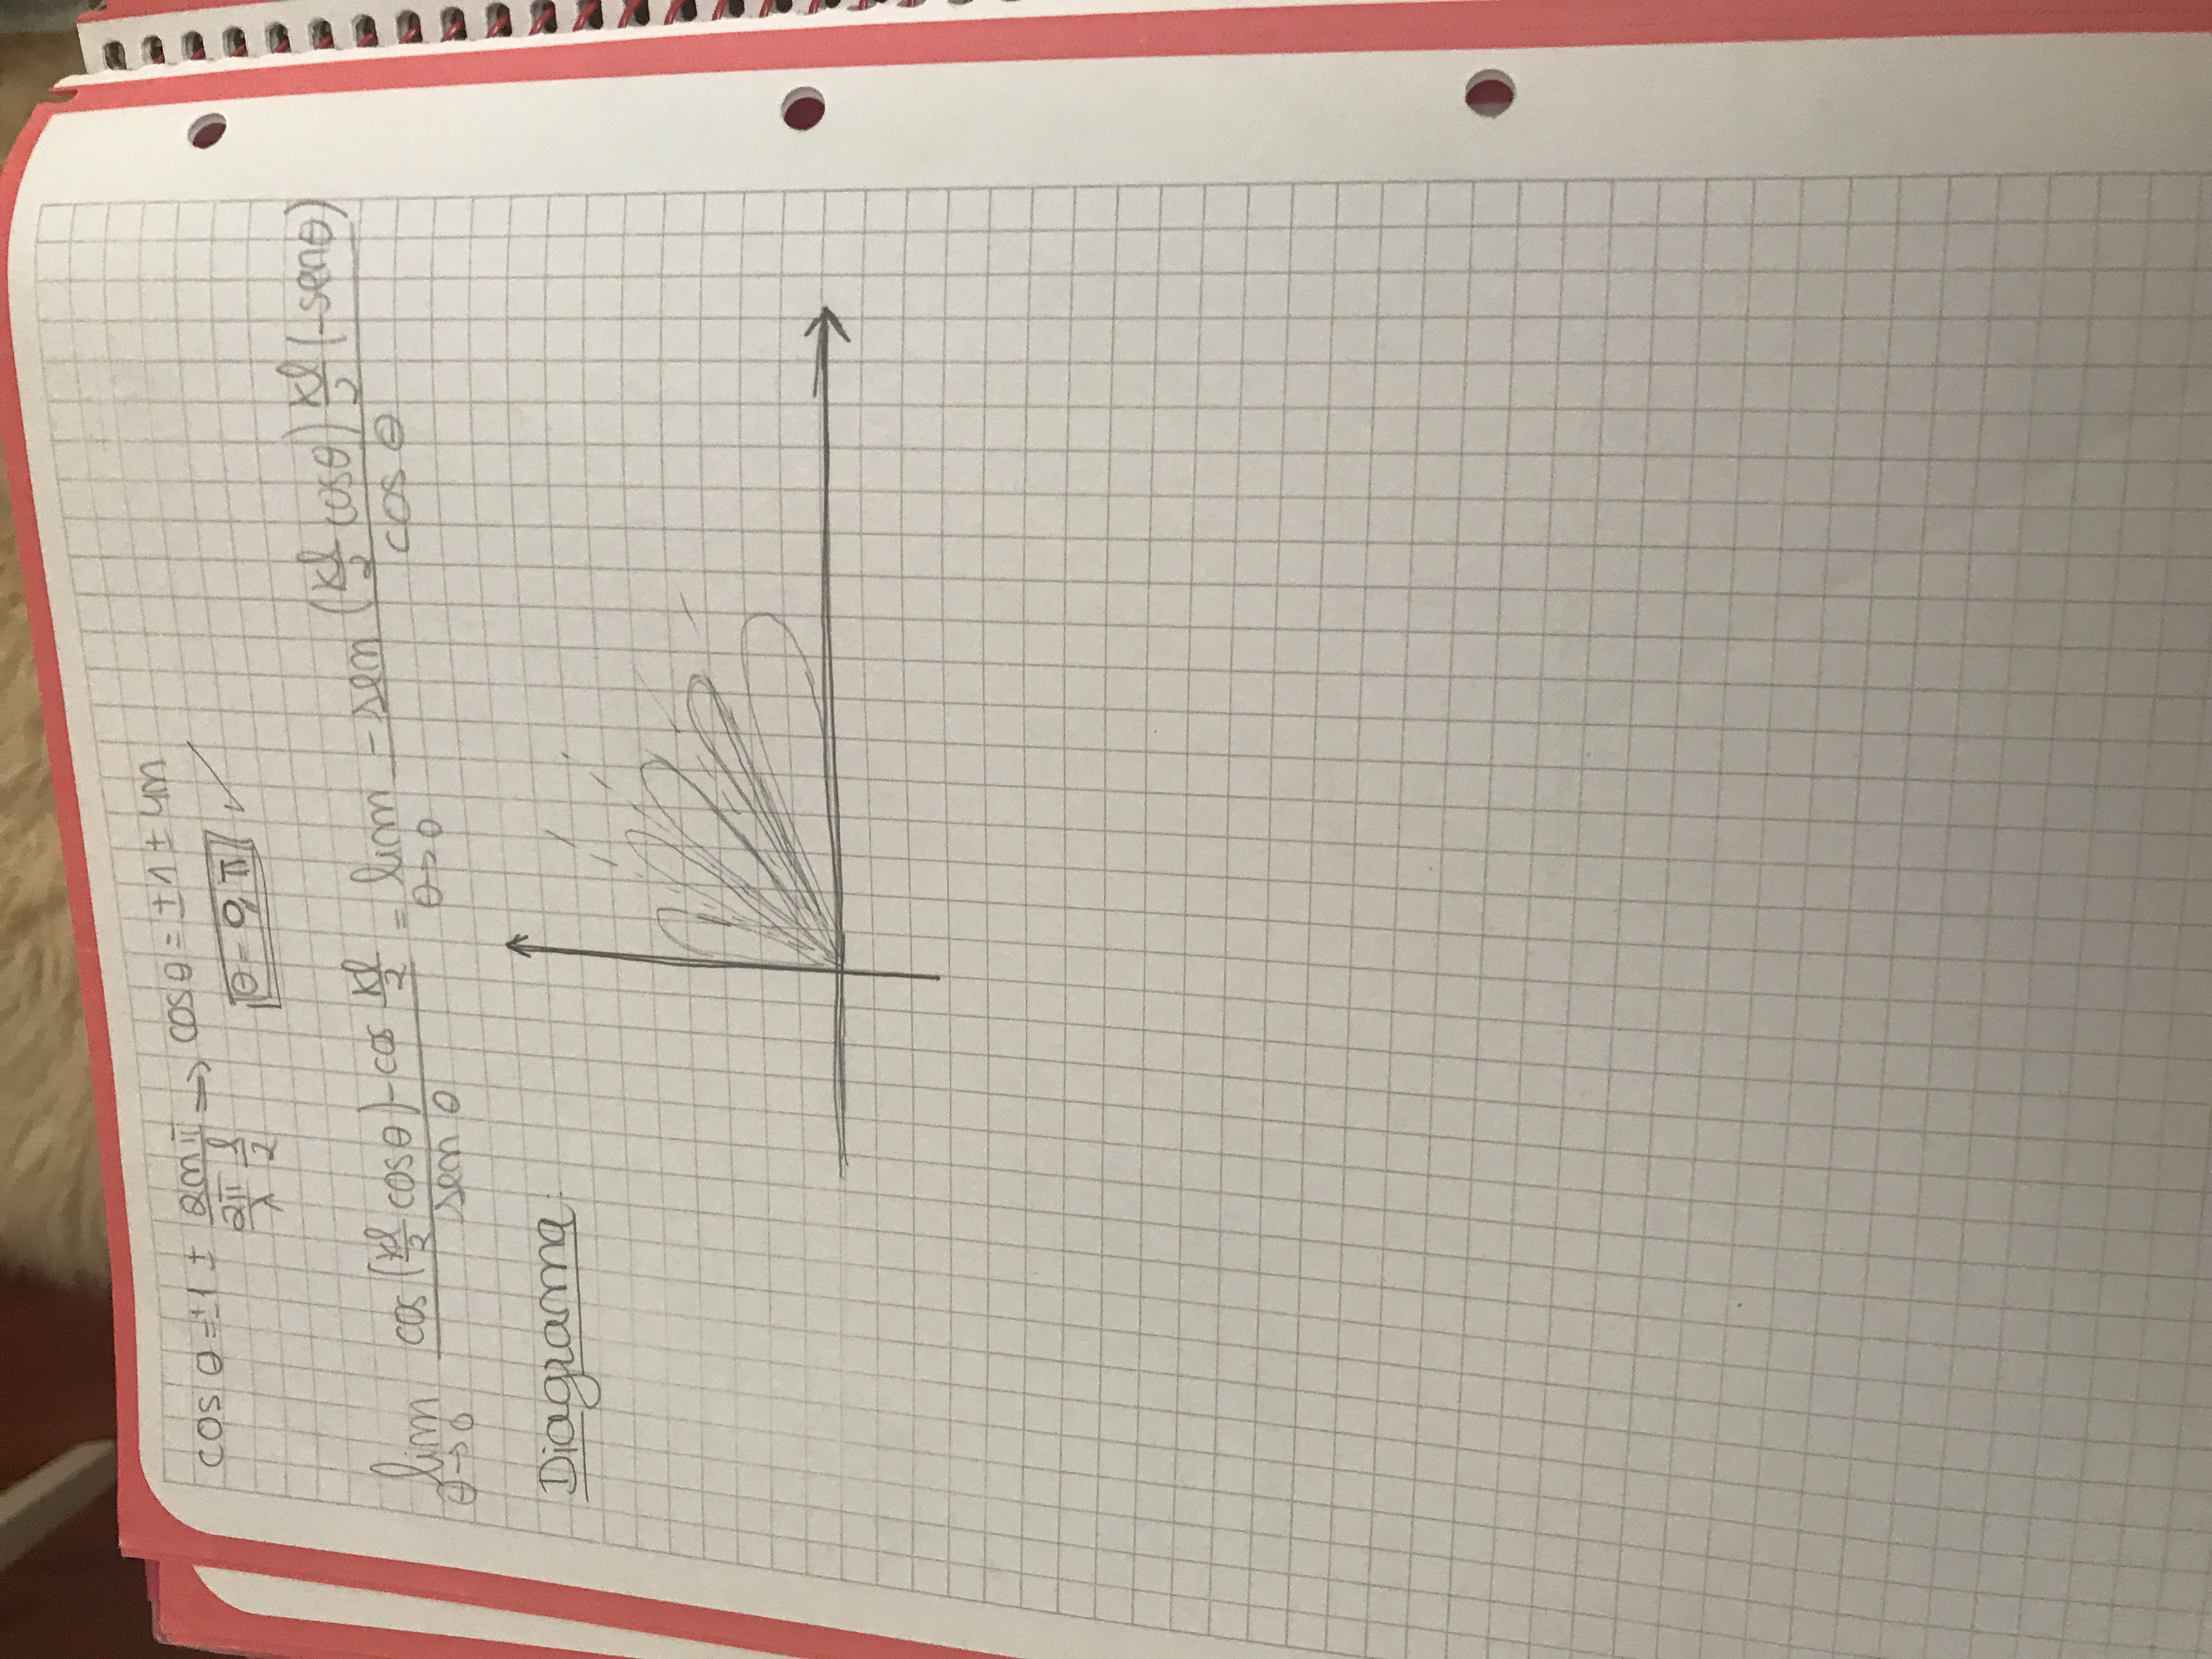 cos θ = ±1 ± 2nπ / (2π/λ · l/2) → cos θ = ±1 ± 4n
θ = 0, π ✓
lim θ→0 (cos(kl/2 cosθ) - cos kl/2) / sen θ = lim θ→0 (-sen(kl/2 cosθ) kl/2 (-senθ)) / cos θ
Diagrama: